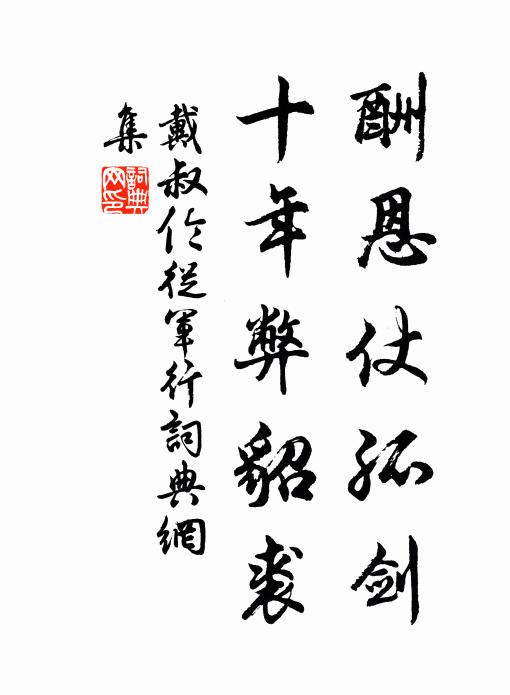 酬恩仗孤剑
十年弊貂裘
戴叔伦從軍行詞典網
集
詞典网印